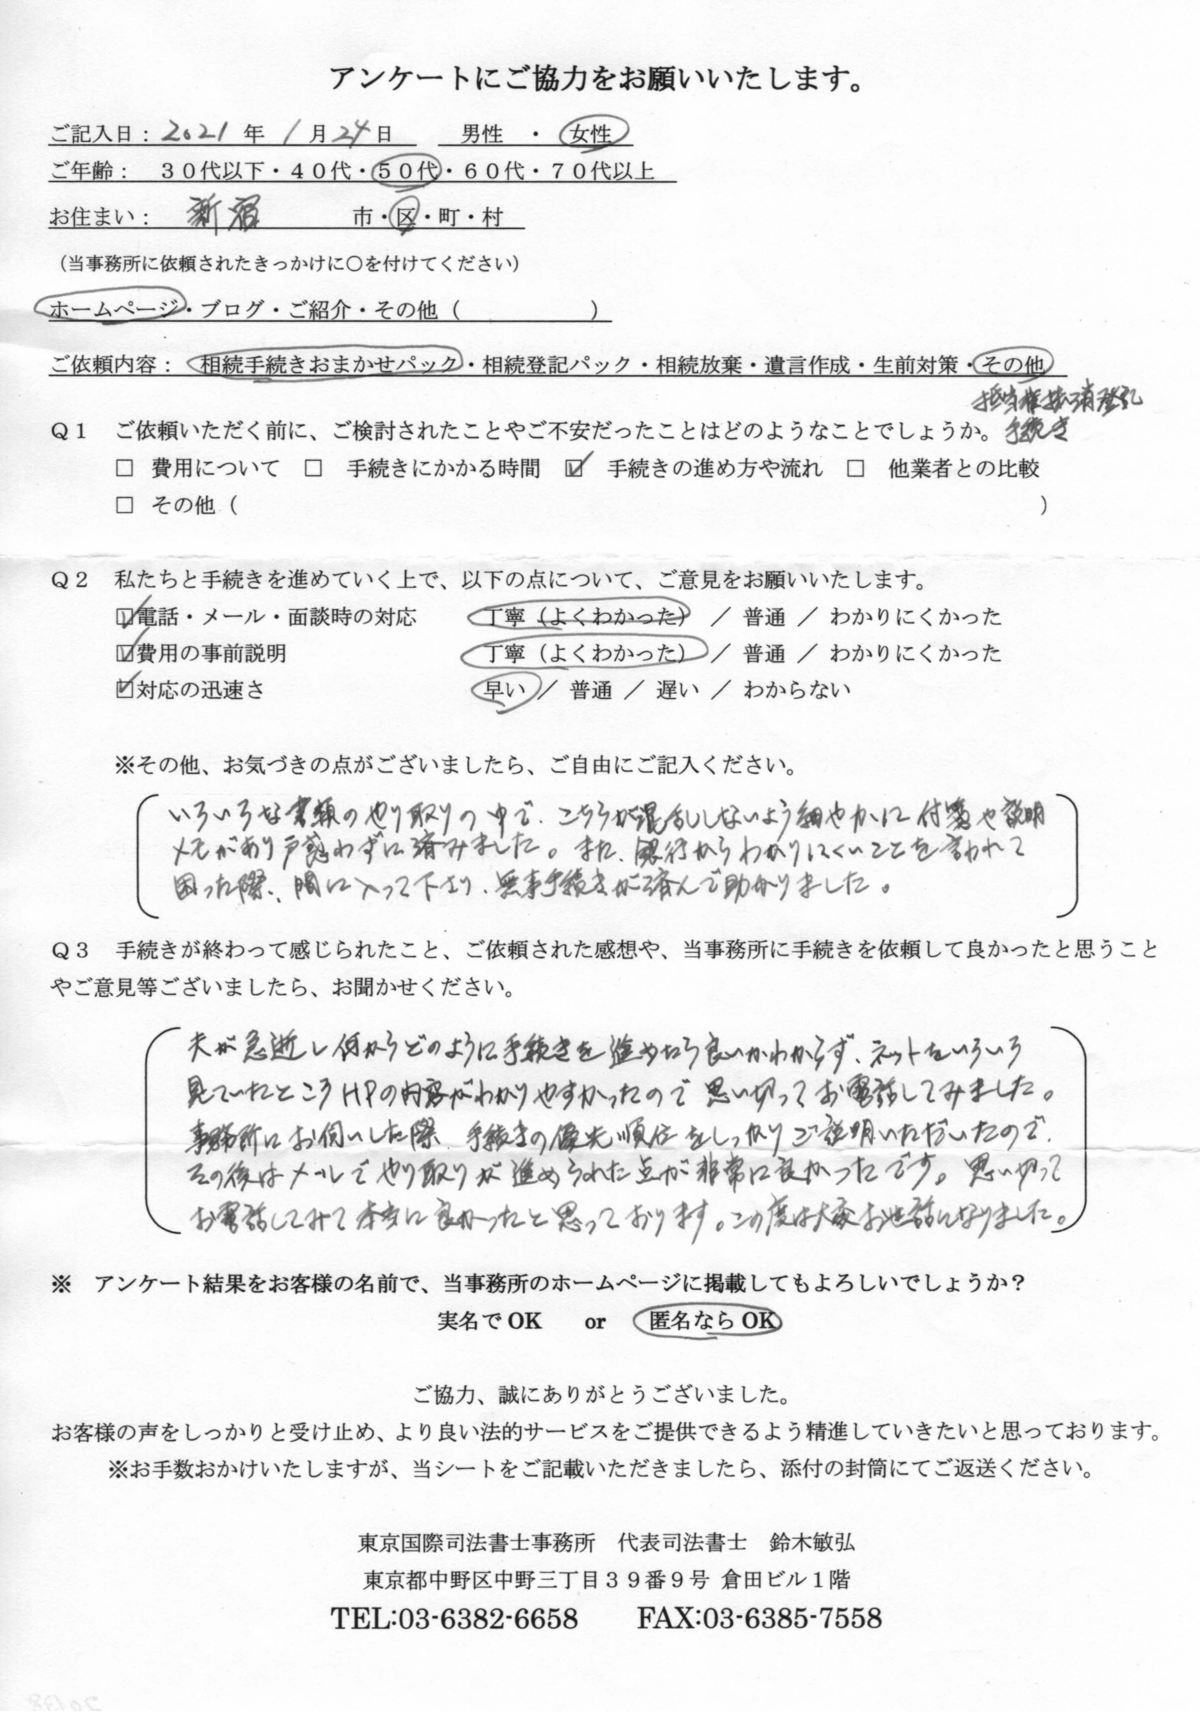 アンケートにご協力をお願いいたします。
ご記入日： 2021 年 1 月 24 日　男性 ・ 女性
ご年齢：　３０代以下・４０代・５０代・６０代・７０代以上
お住まい：　新宿　市・区・町・村
（当事務所に依頼されたきっかけに○を付けてください）
ホームページ・ブログ・ご紹介・その他（　　　　　　）
ご依頼内容：　相続手続きおまかせパック・相続登記パック・相続放棄・遺言作成・生前対策・その他
抵当権抹消登記
手続き
Ｑ１　ご依頼いただく前に、ご検討されたことやご不安だったことはどのようなことでしょうか。
□　費用について　□　手続きにかかる時間　☑　手続きの進め方や流れ　□　他業者との比較
□　その他（　　　　　　　　　　）
Ｑ２　私たちと手続きを進めていく上で、以下の点について、ご意見をお願いいたします。
☑電話・メール・面談時の対応　丁寧（よくわかった）　／ 普通 ／ わかりにくかった
☑費用の事前説明　丁寧（よくわかった）　／ 普通 ／ わかりにくかった
☑対応の迅速さ　早い ／ 普通 ／ 遅い ／ わからない
※その他、お気づきの点がございましたら、ご自由にご記入ください。
いろいろな書類のやり取りの中で、こちらが混乱ししないよう細やかに付箋や説明
メモがあり戸惑わずに済みました。また、銀行からわかりにくいことを言われて
困った際、間に入って下さり、無事手続きが済んで助かりました。
Ｑ３　手続きが終わって感じられたこと、ご依頼された感想や、当事務所に手続きを依頼して良かったと思うこと
やご意見等ございましたら、お聞かせください。
夫が急逝し何からどのように手続きを進めたら良いかわからず、ネットをいろいろ
見ていたところHPの内容がわかりやすかったので思い切ってお電話してみました。
事務所にお伺いした際、手続きの優先順位をしっかりご説明いただいたので、
その後はメールでやり取りが進められた点が非常に良かったです。思い切って
お電話してみて本当に良かったと思っております。この度は大変お世話になりました。
※　アンケート結果をお客様の名前で、当事務所のホームページに掲載してもよろしいでしょうか？
実名で OK　or　匿名なら OK
ご協力、誠にありがとうございました。
お客様の声をしっかりと受け止め、より良い法的サービスをご提供できるよう精進していきたいと思っております。
※お手数おかけいたしますが、当シートをご記載いただきましたら、添付の封筒にてご返送ください。
東京国際司法書士事務所　代表司法書士　鈴木敏弘
東京都中野区中野三丁目３９番９号 倉田ビル１階
TEL:03-6382-6658　FAX:03-6385-7558